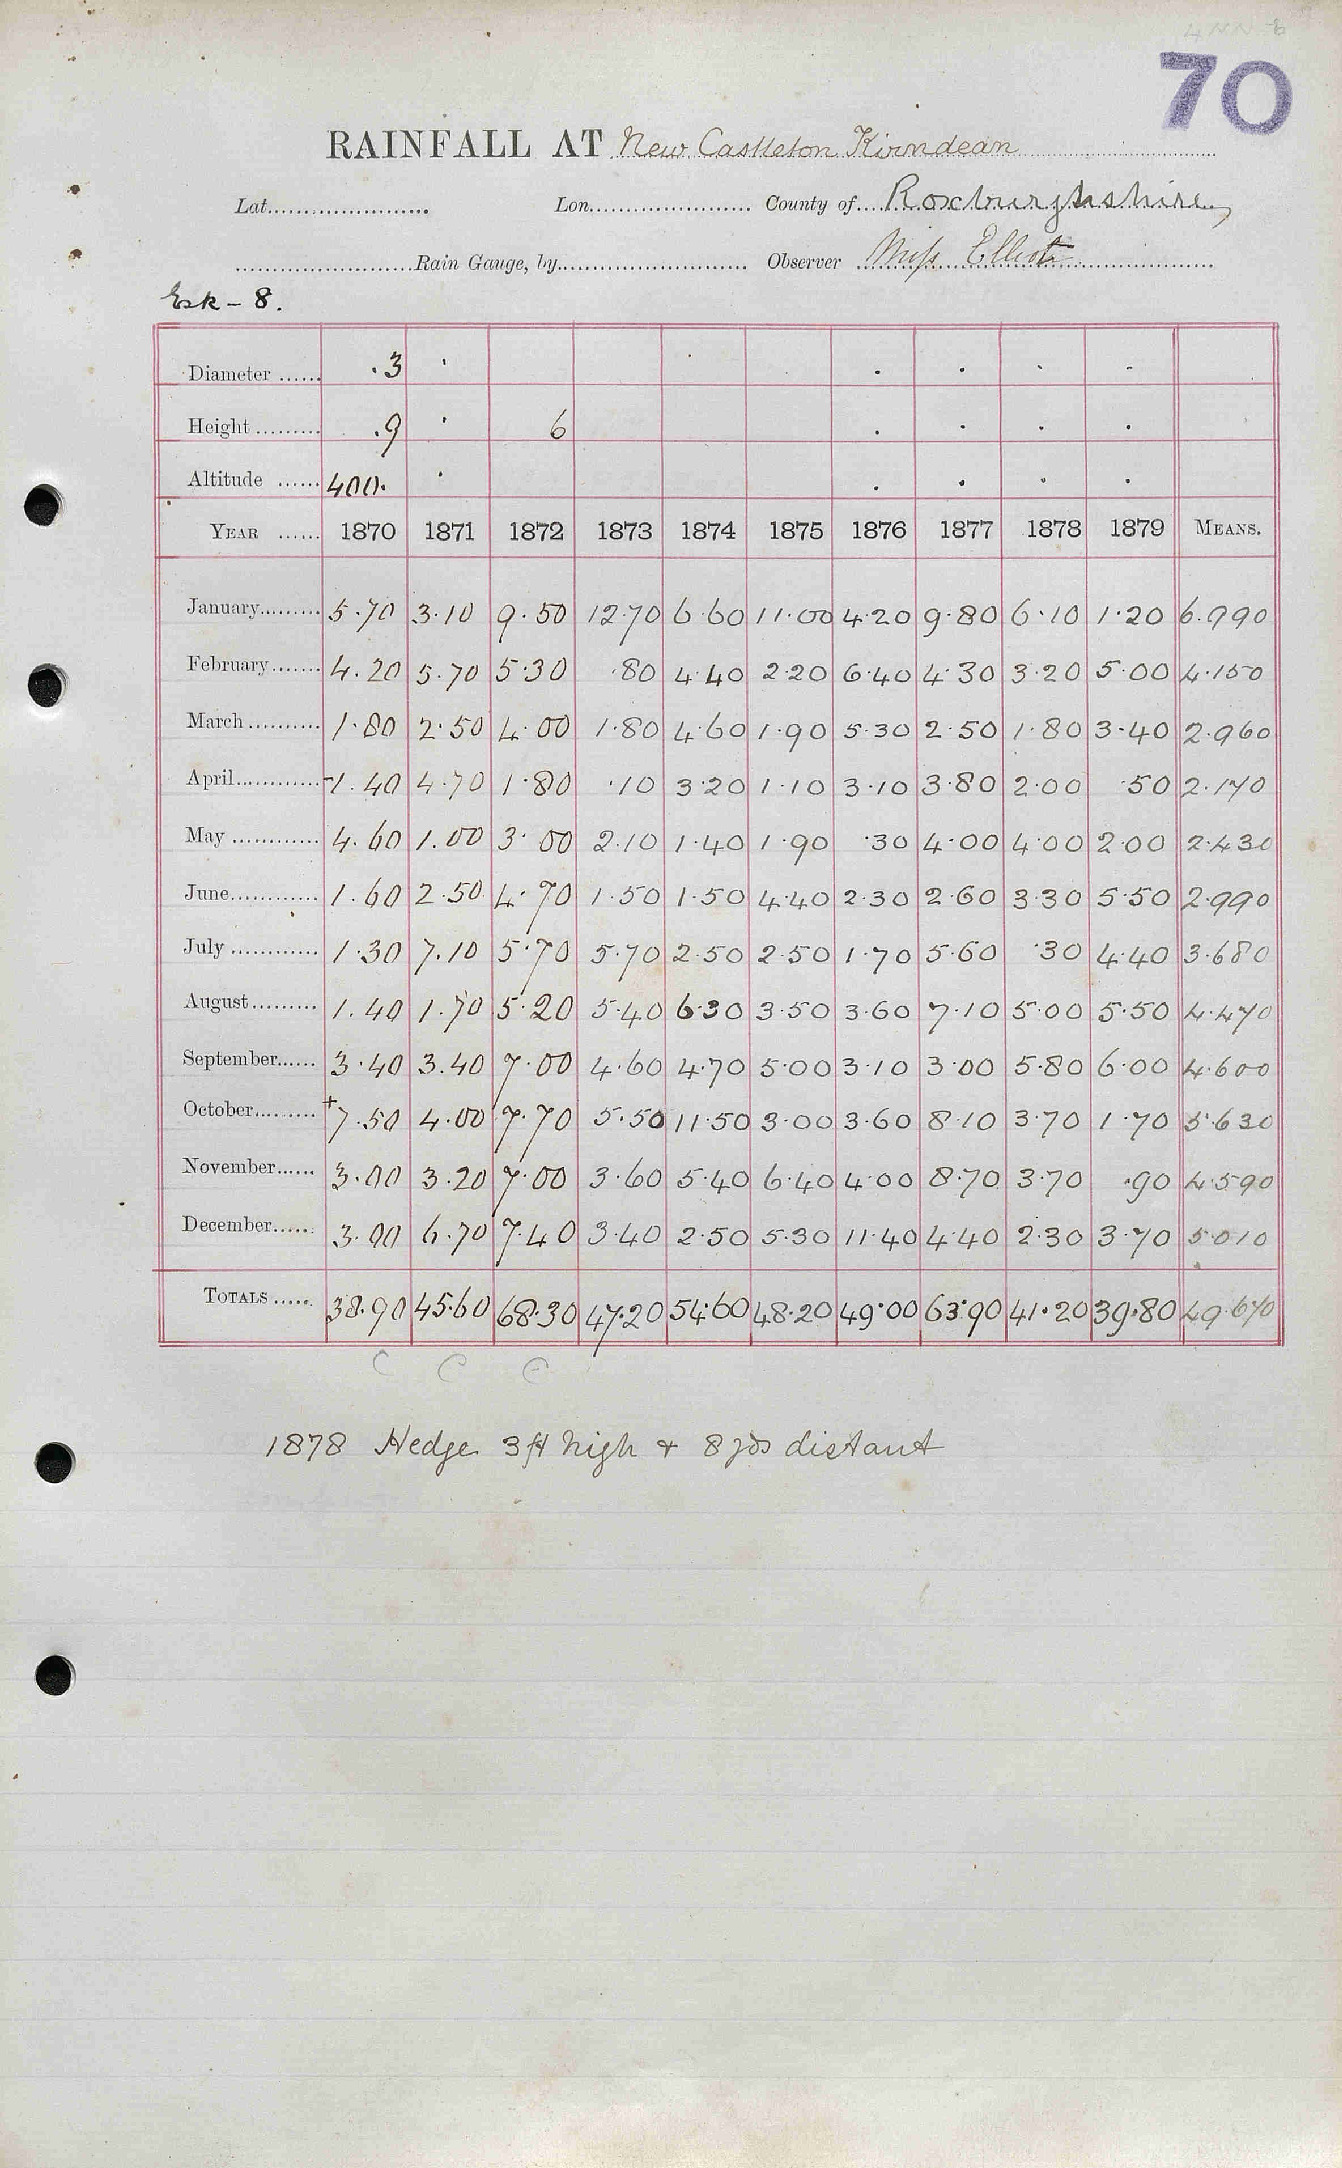 70
RAINFALL AT New Castleton Kirndean
Lat. Lon. County of Roxburghshire,
Rain Gauge, by Observer Miss Elliot
Esk - 8.
Diameter ...... .3
Height ......... .9 6
Altitude ...... 400.
YEAR ...... 1870 1871 1872 1873 1874 1875 1876 1877 1878 1879 MEANS.
January......... 5.70 3.10 9.50 12.70 6.60 11.00 4.20 9.80 6.10 1.20 6.990
February....... 4.20 5.70 5.30 .80 4.40 2.20 6.40 4.30 3.20 5.00 4.150
March.......... 1.80 2.50 4.00 1.80 4.60 1.90 5.30 2.50 1.80 3.40 2.960
April............ 1.40 4.70 1.80 .10 3.20 1.10 3.10 3.80 2.00 .50 2.170
May ............ 4.60 1.00 3.00 2.10 1.40 1.90 .30 4.00 4.00 2.00 2.430
June............ 1.60 2.50 4.70 1.50 1.50 4.40 2.30 2.60 3.30 5.50 2.990
July ............ 1.30 7.10 5.70 5.70 2.50 2.50 1.70 5.60 .30 4.40 3.680
August......... 1.40 1.70 5.20 5.40 6.30 3.50 3.60 7.10 5.00 5.50 4.470
September...... 3.40 3.40 7.00 4.60 4.70 5.00 3.10 3.00 5.80 6.00 4.600
October......... + 7.50 4.00 7.70 5.50 11.50 3.00 3.60 8.10 3.70 1.70 5.630
November...... 3.00 3.20 7.00 3.60 5.40 6.40 4.00 8.70 3.70 .90 4.590
December...... 3.00 6.70 7.40 3.40 2.50 5.30 11.40 4.40 2.30 3.70 5.010
TOTALS ...... 38.90 45.60 68.30 47.20 54.60 48.20 49.00 63.90 41.20 39.80 49.670
C C C
1878 Hedge 3 ft high + 8 yds distant